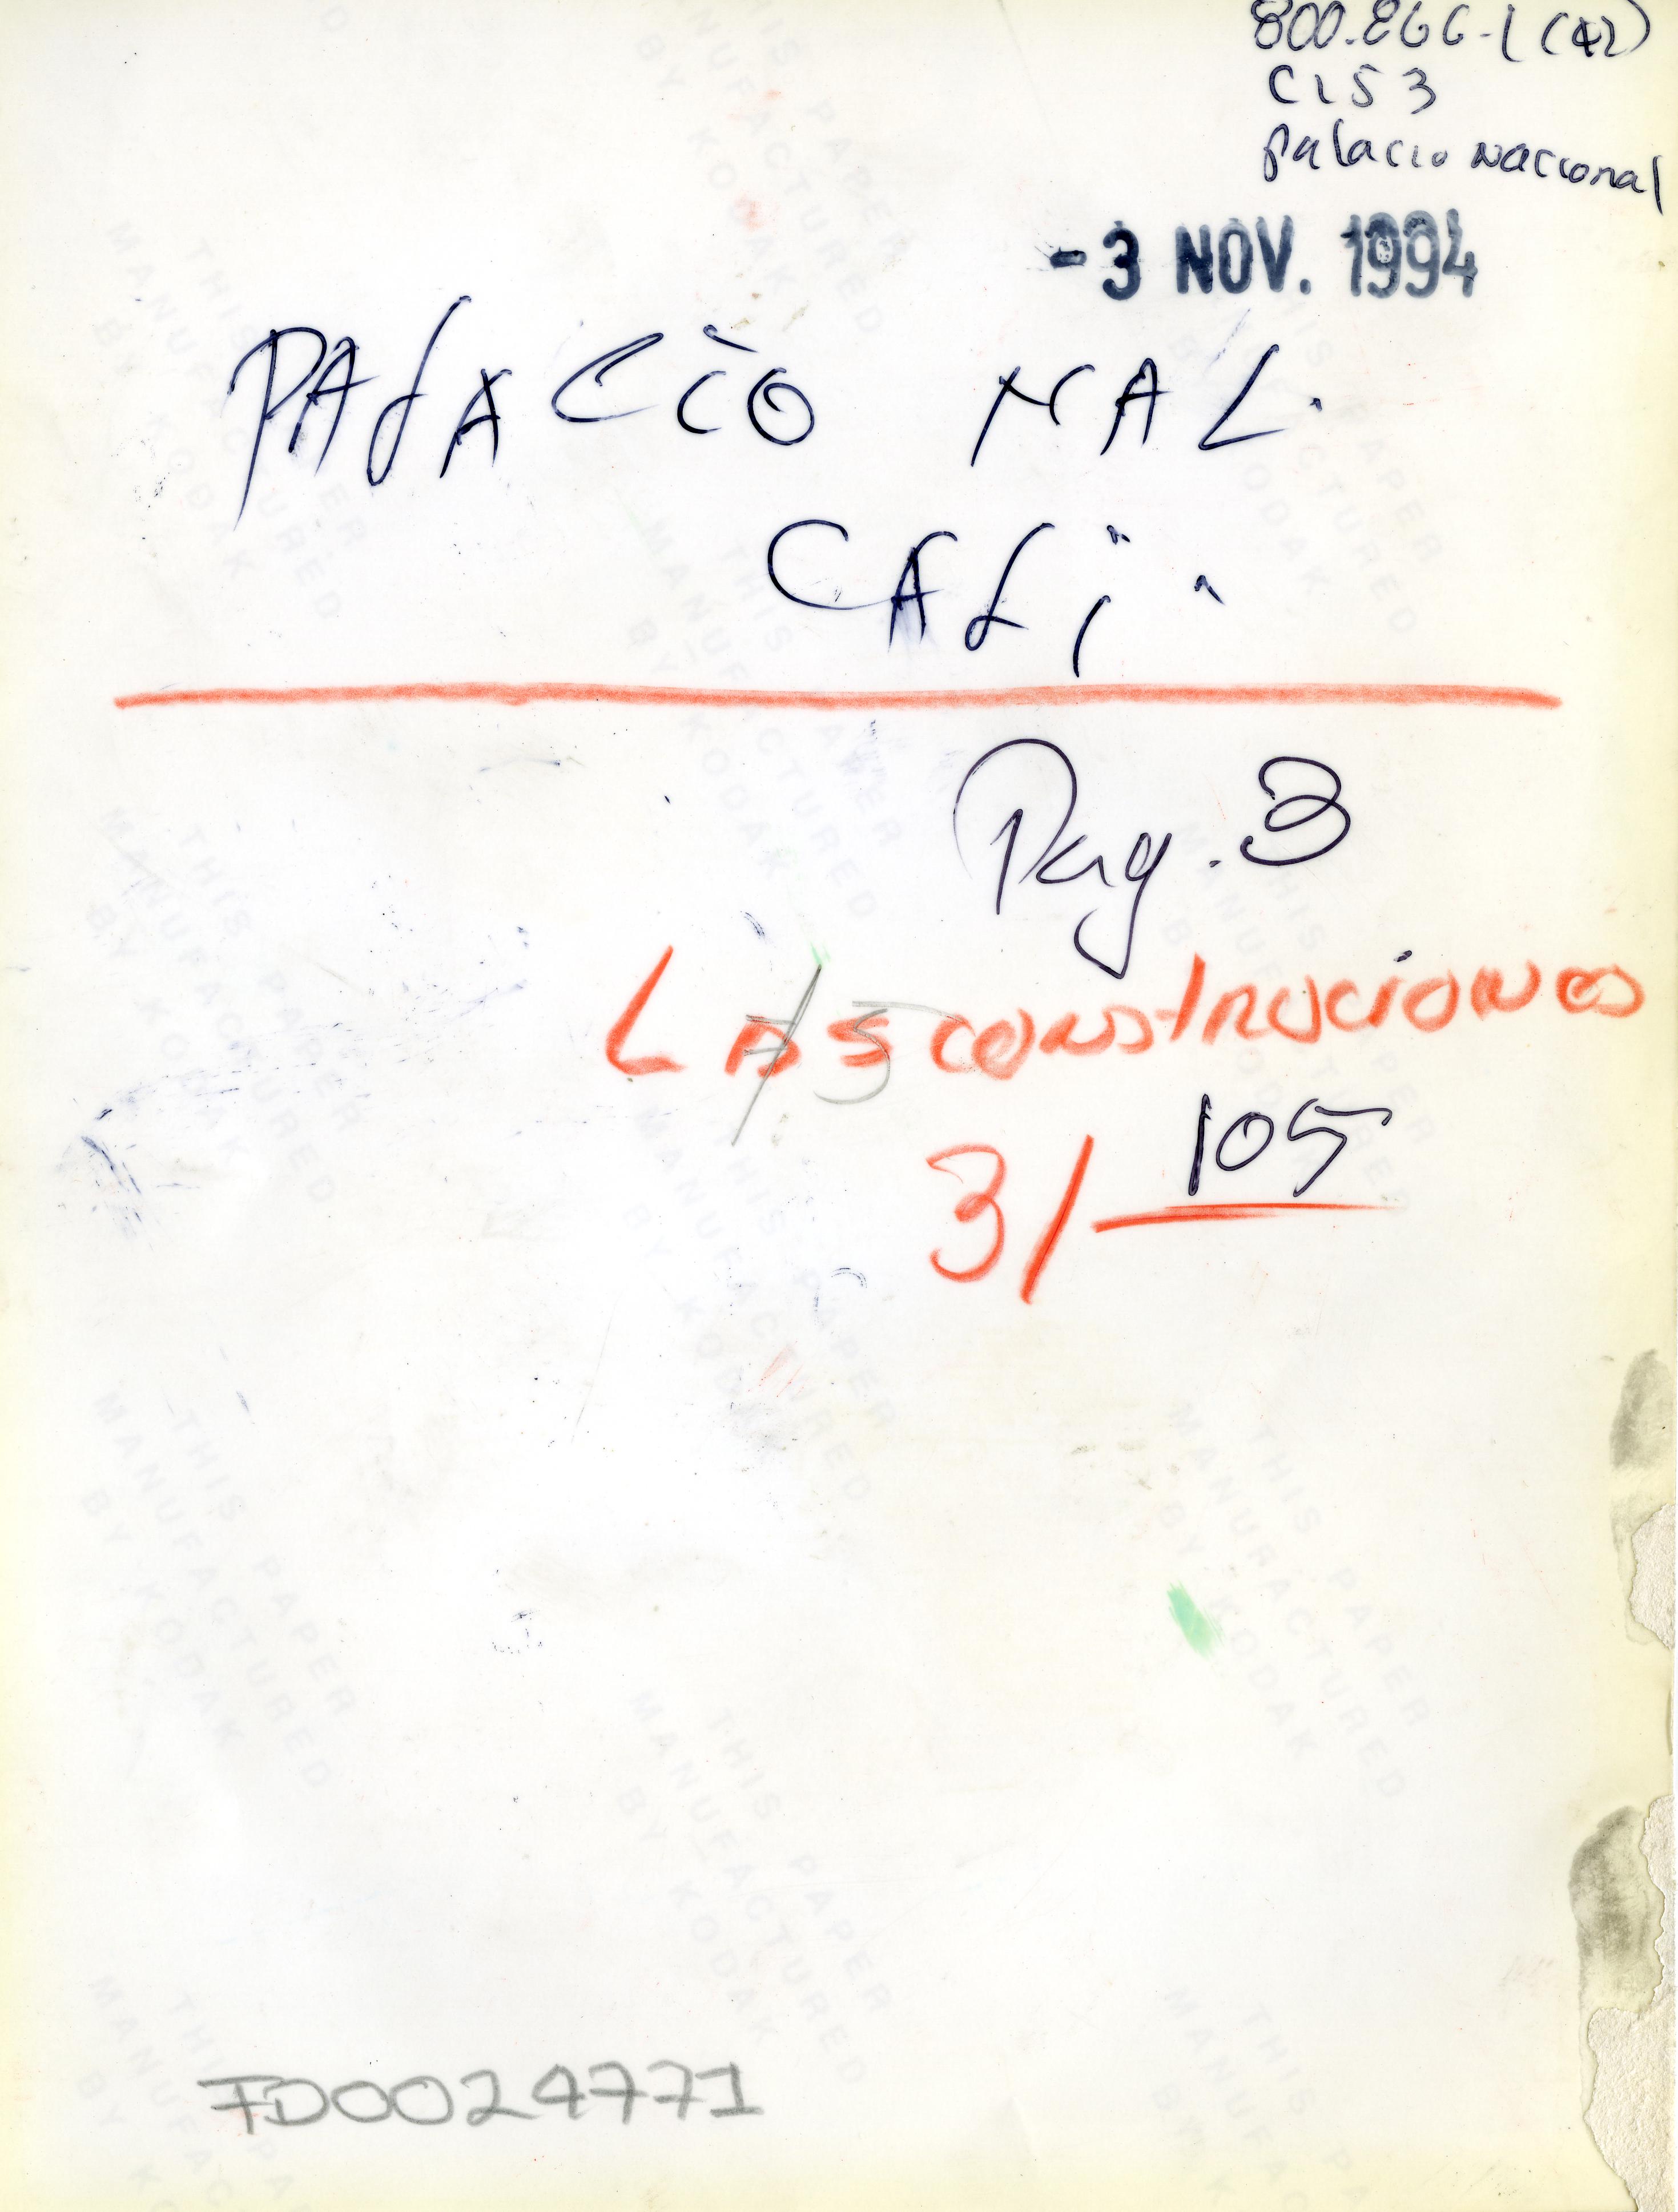 800.866-1 (42)
C153
palacio nacional
-3 NOV. 1994
PALACIO NAL.
CALI.
Pag. 3
LAS construciones
15
3/ 105
FD0024771
THIS PAPER
MANUFACTURED
BY KODAK